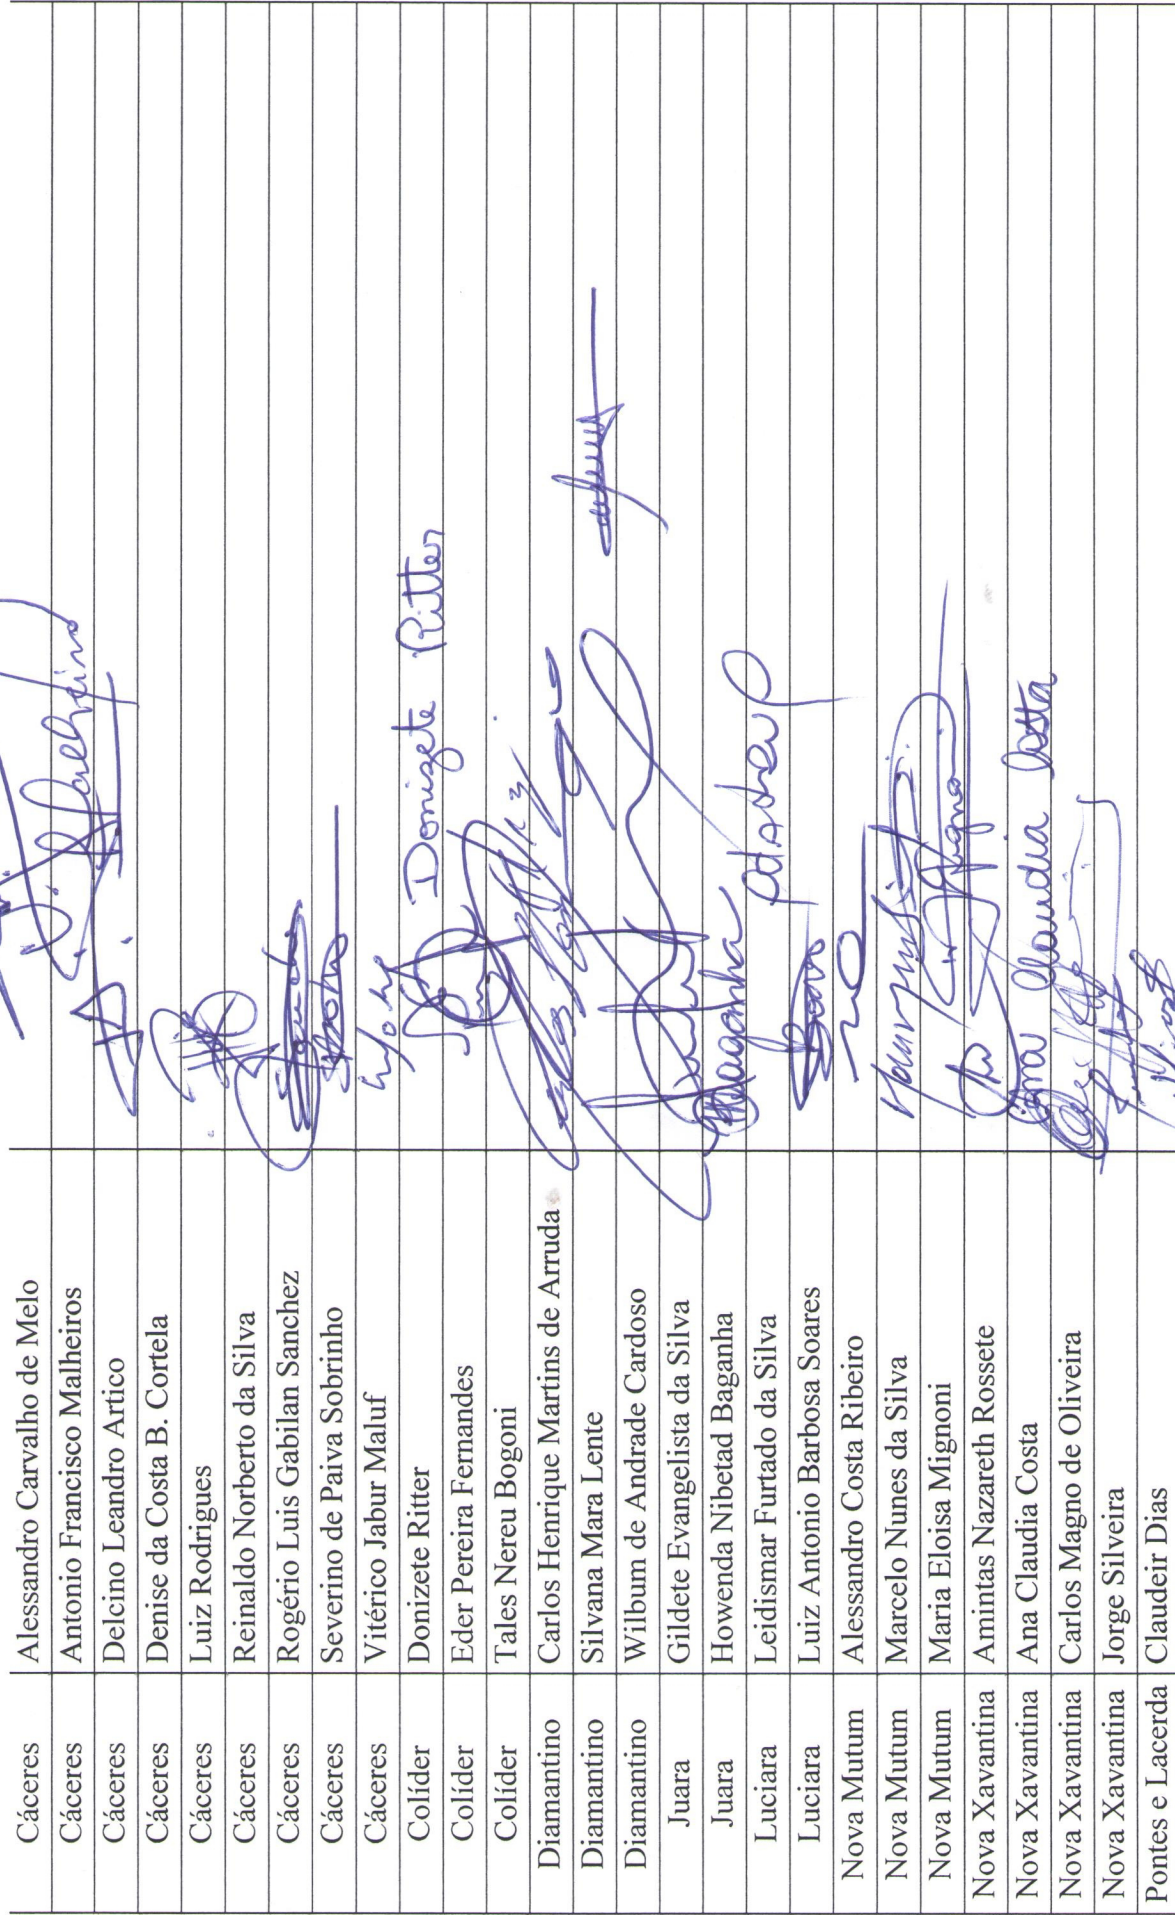 Cáceres Alessandro Carvalho de Melo
Cáceres Antonio Francisco Malheiros
Cáceres Delcino Leandro Artico
Cáceres Denise da Costa B. Cortela
Cáceres Luiz Rodrigues
Cáceres Reinaldo Norberto da Silva
Cáceres Rogério Luis Gabilan Sanchez
Cáceres Severino de Paiva Sobrinho
Cáceres Vitérico Jabur Maluf
Colíder Donizete Ritter Donizete Ritter
Colíder Eder Pereira Fernandes
Colíder Tales Nereu Bogoni
Diamantino Carlos Henrique Martins de Arruda
Diamantino Silvana Mara Lente
Diamantino Wilbum de Andrade Cardoso
Juara Gildete Evangelista da Silva
Juara Howenda Nibetad Baganha Baganha
Luciara Leidismar Furtado da Silva
Luciara Luiz Antonio Barbosa Soares
Nova Mutum Alessandro Costa Ribeiro
Nova Mutum Marcelo Nunes da Silva
Nova Mutum Maria Eloisa Mignoni
Nova Xavantina Amintas Nazareth Rossete
Nova Xavantina Ana Claudia Costa Ana Claudia Costa
Nova Xavantina Carlos Magno de Oliveira
Nova Xavantina Jorge Silveira
Pontes e Lacerda Claudeir Dias